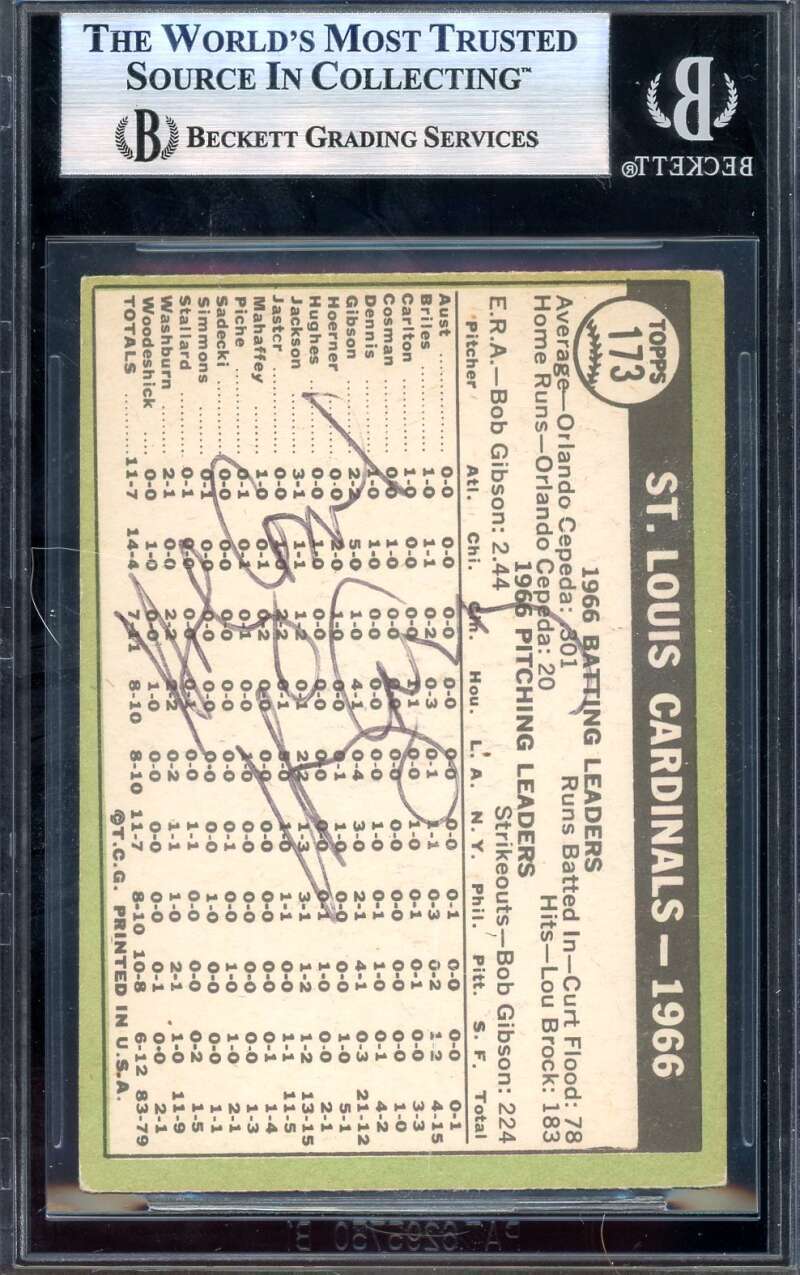 THE WORLD'S MOST TRUSTED
SOURCE IN COLLECTING™
B BECKETT GRADING SERVICES
B
BECKETT®
TOPPS
173
ST. LOUIS CARDINALS—1966
1966 BATTING LEADERS
Average—Orlando Cepeda: .301 Runs Batted In—Curt Flood: 78
Home Runs—Orlando Cepeda: 20 Hits—Lou Brock: 183
1966 PITCHING LEADERS
E.R.A.—Bob Gibson: 2.44 Strikeouts—Bob Gibson: 224
Pitcher Atl. Chi. Cin. Hou. L. A. N. Y. Phil. Pitt. S. F. Total
Aust 0-0 0-0 0-0 0-0 0-0 0-0 0-1 0-0 0-0 0-1
Briles 1-0 1-1 0-2 0-3 0-1 1-1 0-3 0-2 1-2 4-15
Carlton 1-0 0-0 0-0 1-1 0-0 1-0 0-1 0-1 0-0 3-3
Cosman 0-0 1-0 0-0 0-0 0-0 0-0 0-0 0-0 0-0 1-0
Dennis 1-0 1-0 0-0 0-0 0-1 1-0 0-1 4-2
Gibson 2-2 5-0 1-0 4-1 0-4 3-0 2-1 4-1 0-3 21-12
Hoerner 0-0 2-0 1-0 0-0 0-1 1-0 0-0 0-0 1-0 5-1
Hughes 0-0 1-0 0-0 0-0 0-0 0-0 0-1 1-0 0-0 2-1
Jackson 3-1 1-1 1-2 0-1 2-2 1-3 3-1 1-2 1-2 13-15
Jaster 0-0 1-1 2-2 0-0 5-0 1-0 1-1 0-0 1-1 11-5
Mahaffey 1-0 0-1 0-2 0-0 0-0 0-0 0-0 0-0 0-1 1-4
Piche 0-1 0-1 0-1 0-0 0-0 0-0 0-0 1-0 0-0 1-3
Sadecki 0-0 0-0 0-0 0-0 0-0 0-1 0-0 1-0 1-0 2-1
Simmons 0-1 0-0 0-0 0-0 0-0 0-0 1-0 0-0 0-0 1-1
Stallard 0-1 0-0 0-0 0-1 0-0 1-1 0-0 0-0 0-2 1-5
Washburn 2-1 0-0 2-2 2-2 0-2 1-1 1-0 2-1 1-0 11-9
Woodeshick 0-0 1-0 0-0 1-0 0-0 0-0 0-0 0-1 0-0 2-1
TOTALS 11-7 14-4 7-11 8-10 8-10 11-7 8-10 10-8 6-12 83-79
©T.C.G. PRINTED IN U.S.A.